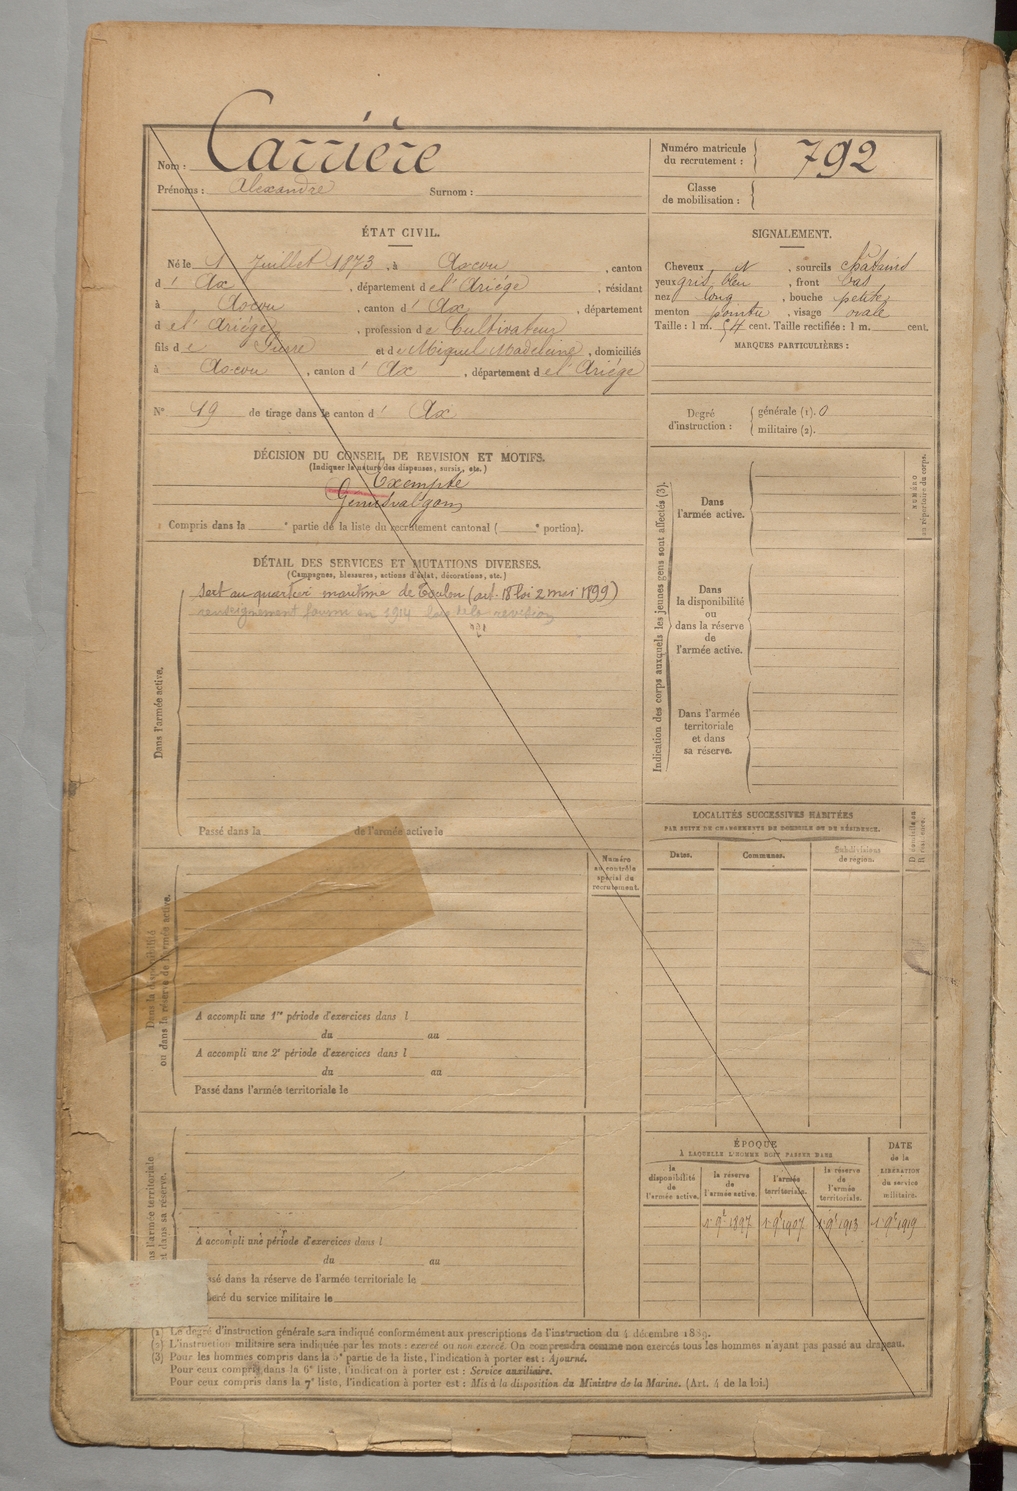 Nom : Carrière
Prénoms : Alexandre Surnom :
Numéro matricule
du recrutement : 792
Classe
de mobilisation :
ÉTAT CIVIL.
Né le 1 Juillet 1873, à Ascou, canton
d' Ax, département de l'Ariége, résidant
à Ascou, canton d' Ax, département
de l'Ariége, profession de Cultivateur
fils de Pierre et de Miquel Madeleine, domiciliés
à Ascou, canton d' Ax, département de l'Ariége
N° 49 de tirage dans le canton d' Ax
SIGNALEMENT.
Cheveux, sourcils châtains
yeux gris bleu, front bas
nez long, bouche petite
menton pointu, visage ovale
Taille : 1 m. 54 cent. Taille rectifiée : 1 m. cent.
MARQUES PARTICULIÈRES :
Degré
d'instruction :
générale (1). 0
militaire (2).
DÉCISION DU CONSEIL DE REVISION ET MOTIFS.
(Indiquer la nature des dispenses, sursis, etc.)
Exempté
Genus valgum
Compris dans la e partie de la liste du recrutement cantonal ( e portion).
DÉTAIL DES SERVICES ET MUTATIONS DIVERSES.
(Campagnes, blessures, actions d'éclat, décorations, etc.)
Sert au quartier maritime de Toulon (art. 18 loi 2 mai 1899)
renseignement fourni en 1914 lors de la révision
Dans l'armée active.
Passé dans la de l'armée active le
Indication des corps auxquels les jeunes gens sont affectés (3).
Dans
l'armée active.
Dans
la disponibilité
ou
dans la réserve
de
l'armée active.
Dans l'armée
territoriale
et dans
sa réserve.
NUMÉRO
au répertoire du corps.
LOCALITÉS SUCCESSIVES HABITÉES
PAR SUITE DE CHANGEMENTS DE DOMICILE OU DE RÉSIDENCE.
Dates. Communes. Subdivisions
de région.
D domicile ou
R résidence.
Dans la disponibilité
ou dans la réserve de l'armée active.
Numéro
au contrôle
spécial du
recrutement.
A accompli une 1re période d'exercices dans l
du au
A accompli une 2e période d'exercices dans l
du au
Passé dans l'armée territoriale le
ÉPOQUE
À LAQUELLE L'HOMME DOIT PASSER DANS
la
disponibilité
de
l'armée active.
la réserve
de
l'armée active.
l'armée
territoriale.
la réserve
de
l'armée
territoriale.
DATE
de la
LIBÉRATION
du service
militaire.
1 9e 1897 1 9e 1907 1 9e 1913 1 9e 1919
l'armée territoriale
et dans sa réserve.
A accompli une période d'exercices dans l
du au
ssé dans la réserve de l'armée territoriale le
béré du service militaire le
(1) Le degré d'instruction générale sera indiqué conformément aux prescriptions de l'instruction du 4 décembre 1889.
(2) L'instruction militaire sera indiquée par les mots : exercé ou non exercé. On comprendra comme non exercés tous les hommes n'ayant pas passé au drapeau.
(3) Pour les hommes compris dans la 5e partie de la liste, l'indication à porter est : Ajourné.
Pour ceux compris dans la 6e liste, l'indication à porter est : Service auxiliaire.
Pour ceux compris dans la 7e liste, l'indication à porter est : Mis à la disposition du Ministre de la Marine. (Art. 4 de la loi.)